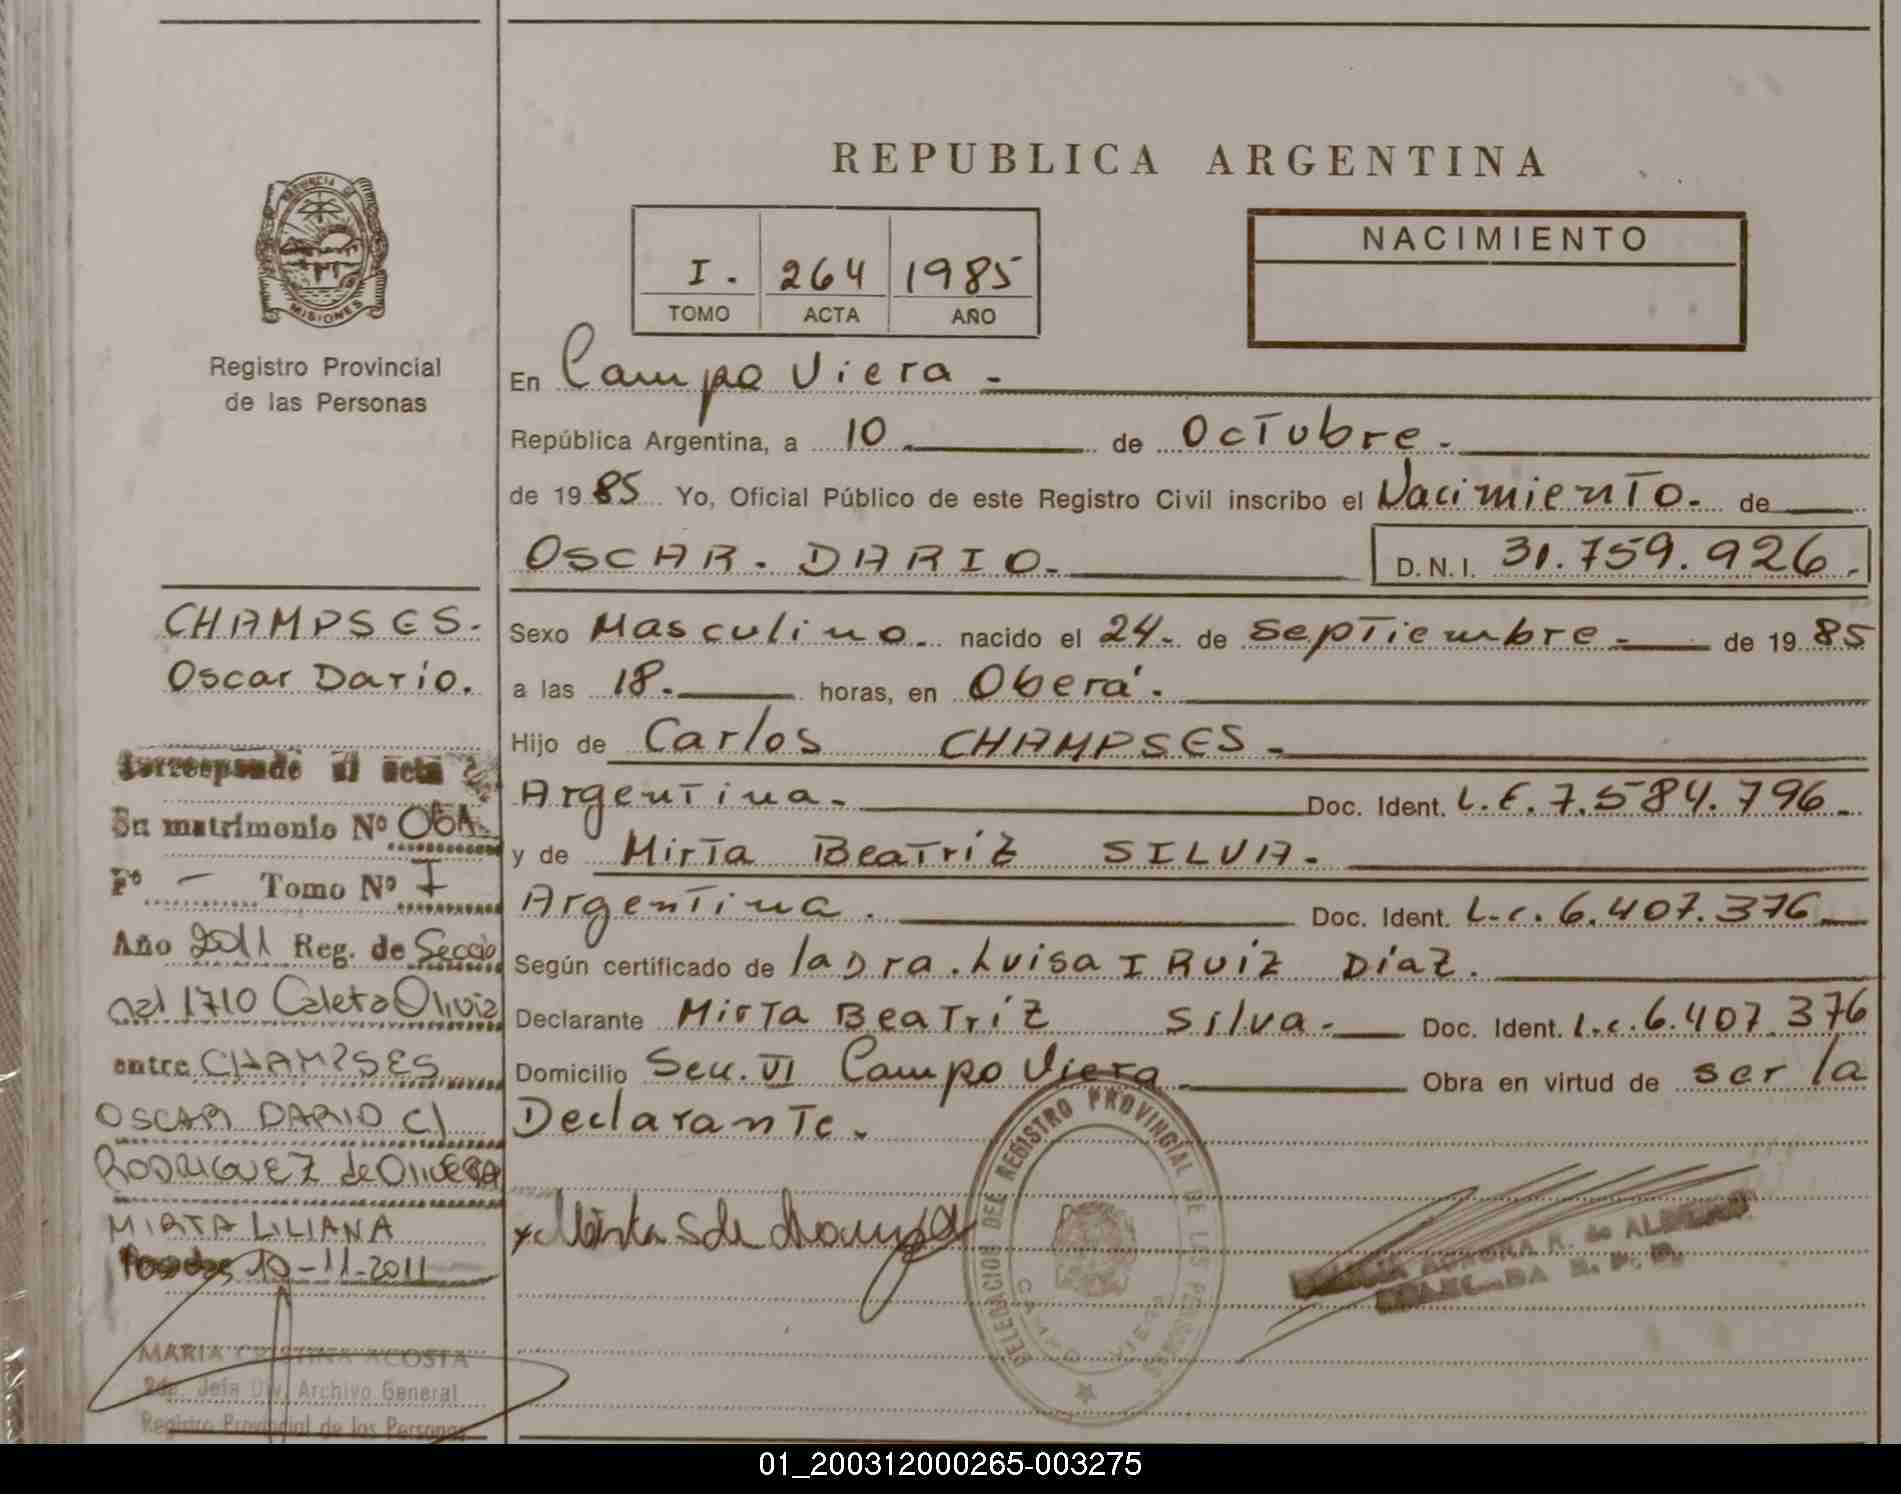 REPUBLICA ARGENTINA
PROVINCIA DE
MISIONES
Registro Provincial
de las Personas
I. 264 1985
TOMO ACTA AÑO
NACIMIENTO
En Campo Viera -
República Argentina, a 10. de Octubre.
de 1985 Yo, Oficial Público de este Registro Civil inscribo el Nacimiento. de
OSCAR. DARIO. D.N.I. 31.759.926.
Sexo Masculino. nacido el 24. de Septiembre. de 1985
a las 18. horas, en Oberá.
Hijo de Carlos CHAMPSES.
Argentina. Doc. Ident. L.E. 7.584.796.
y de Mirta Beatriz SILVA.
Argentina. Doc. Ident. L.c. 6.407.376
Según certificado de la Dra. Luisa I Ruiz Díaz.
Declarante Mirta Beatriz Silva. Doc. Ident. L.c. 6.407.376
Domicilio Secc. VI Campo Viera Obra en virtud de ser la
Declarante.
CHAMPSES.
Oscar Darío.
Corresponde al acta
En matrimonio Nº 06A
Fº - Tomo Nº I
Año 2011 Reg. de Seccio
nal 1710 Caleta Olivia
entre CHAMPSES
OSCAR DARIO C/
RODRIGUEZ de OLIVERA
MIRTA LILIANA
Posadas 10-11-2011
MARIA CRISTINA ACOSTA
2da. Jefa Div. Archivo General
Registro Provincial de las Personas
REGISTRO PROVINCIAL DE LAS PERSONAS
CAMPO VIERA
R. de
01_200312000265-003275